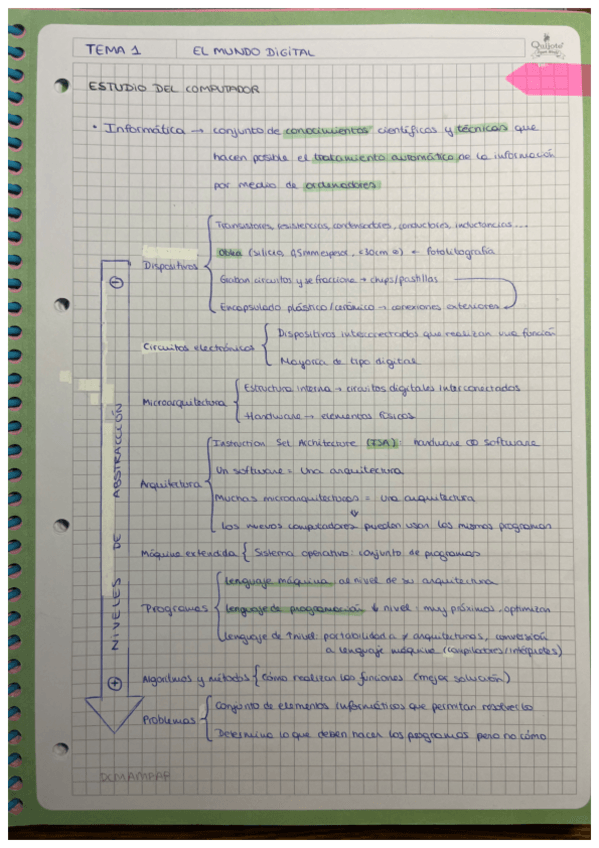 TEMA 1 EL MUNDO DIGITAL
Quijote
ESTUDIO DEL COMPUTADOR
• Informática → conjunto de conocimientos científicos y técnicas que
hacen posible el tratamiento automático de la información
por medio de ordenadores
NIVELES DE ABSTRACCIÓN
Dispositivos
Transistores, resistencias, condensadores, conductores, inductancias...
Oblea (silicio, 0,5mm espesor, <30cm ø) ← Fotolitografía
Graban circuitos y se fracciona → chips/pastillas
Encapsulado plástico/cerámico → conexiones exteriores
Circuitos electrónicos
Dispositivos interconectados que realizan una función
Mayoría de tipo digital
Microarquitectura
Estructura interna → circuitos digitales interconectados
Hardware → elementos físicos
Arquitectura
Instruction Set Architecture (ISA): hardware software
Un software = una arquitectura
Muchas microarquitecturas = una arquitectura
⇓
Los nuevos computadores pueden usar los mismos programas
Máquina extendida { Sistema operativo: conjunto de programas
Programas
Lenguaje máquina al nivel de su arquitectura
Lenguaje de programación ↓ nivel: muy próximos, optimizan
Lenguaje de ↑ nivel: portabilidad a ≠ arquitecturas, conversión
a lenguaje máquina (compiladores/intérpretes)
Algoritmos y métodos { Cómo realizan las funciones (mejor solución)
Problemas
Conjunto de elementos informáticos que permitan resolverlo
Determina lo que deben hacer los programas pero no cómo
DCMAMPAR